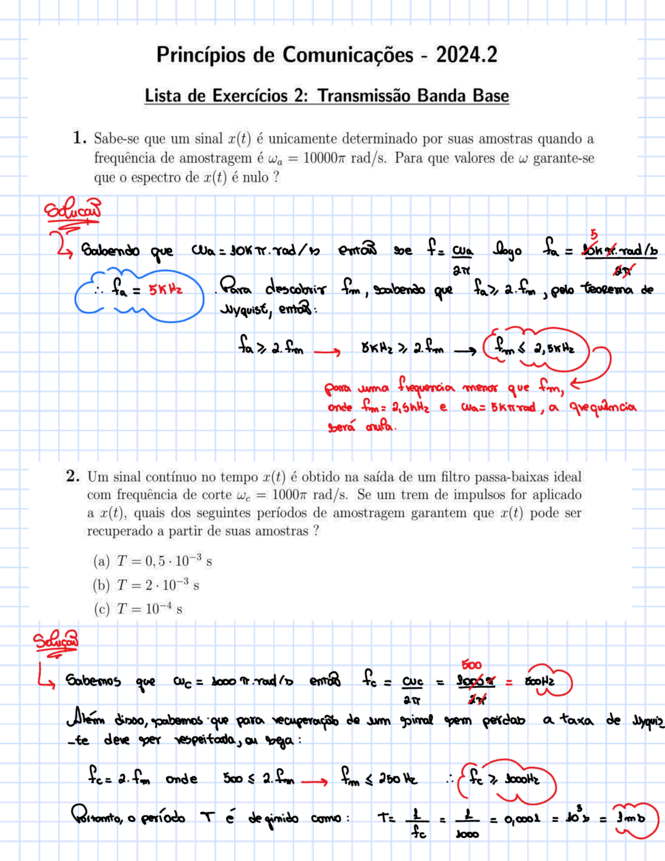 Princípios de Comunicações - 2024.2
Lista de Exercícios 2: Transmissão Banda Base
1. Sabe-se que um sinal x(t) é unicamente determinado por suas amostras quando a
frequência de amostragem é ωa = 10000π rad/s. Para que valores de ω garante-se
que o espectro de x(t) é nulo ?
Solução
Sabendo que ωa = 10Kπ.rad/s então se f = ωa/2π logo fa = 10Kπ.rad/s / 2π 5
∴ fa = 5KHz . Para descobrir fm, sabendo que fa ≥ 2.fm, pelo teorema de
Nyquist, então:
fa ≥ 2.fm → 5KHz ≥ 2.fm → fm ≤ 2,5KHz
para uma frequencia menor que fm,
onde fm = 2,5KHz e ωa = 5Kπ rad, a frequência
será nula.
2. Um sinal contínuo no tempo x(t) é obtido na saída de um filtro passa-baixas ideal
com frequência de corte ωc = 1000π rad/s. Se um trem de impulsos for aplicado
a x(t), quais dos seguintes períodos de amostragem garantem que x(t) pode ser
recuperado a partir de suas amostras ?
(a) T = 0, 5 · 10⁻³ s
(b) T = 2 · 10⁻³ s
(c) T = 10⁻⁴ s
Solução
Sabemos que ωc = 1000 π.rad/s então fc = ωc/2π = 1000π/2π 500 = 500Hz
Além disso, sabemos que para recuperação de um sinal sem perdas a taxa de Nyquis
-te deve ser respeitada, ou seja:
fc = 2.fm onde 500 ≤ 2.fm → fm ≤ 250 Hz ∴ fc ≥ 1000Hz
Portanto, o período T é definido como: T = 1/fc = 1/1000 = 0,0001 = 10³s = 1ms